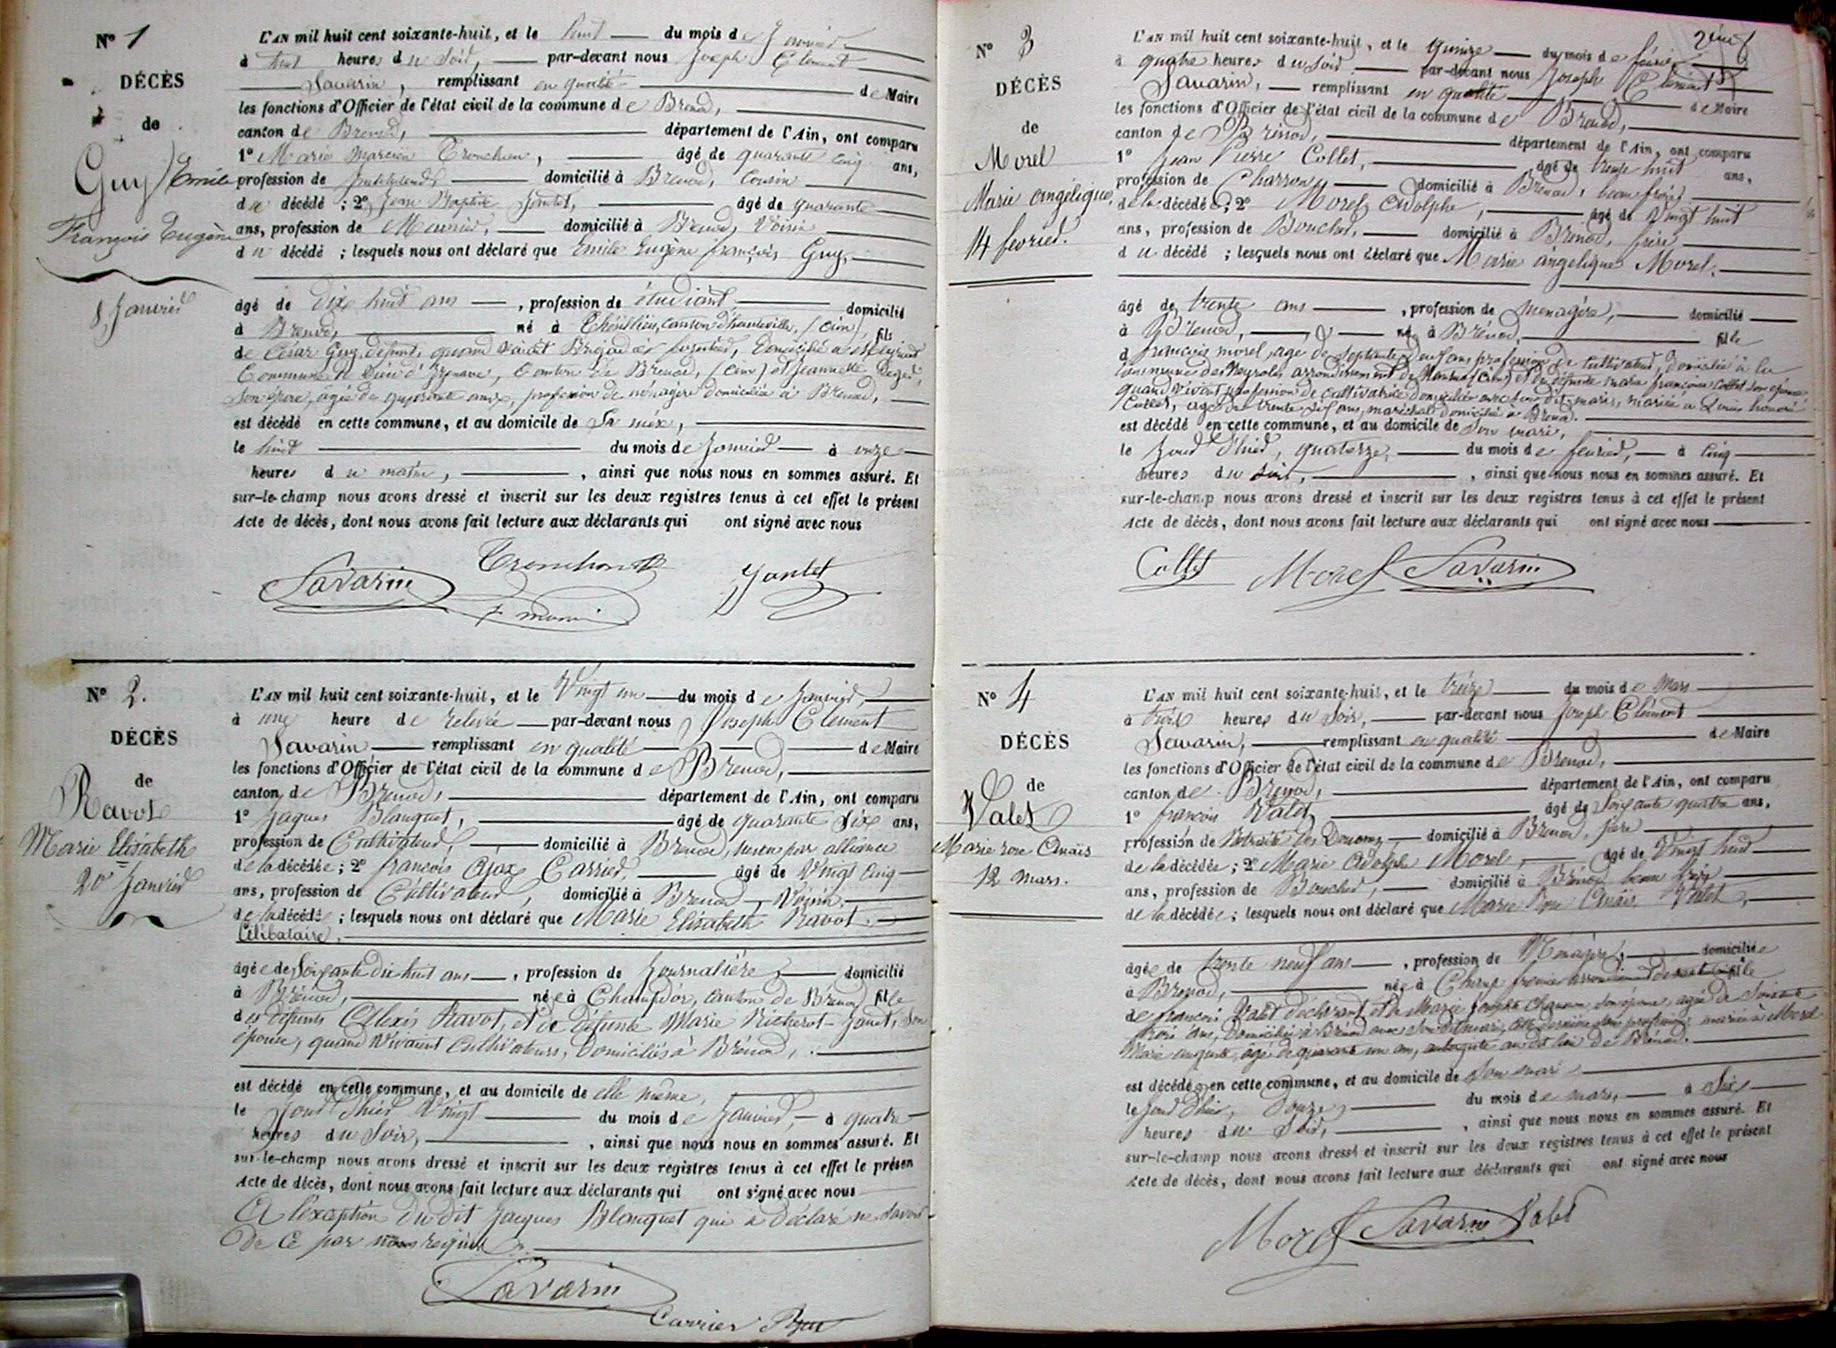 N° 1
DÉCÈS
de
Guy Emile
François Eugène
8 Janvier
L'AN mil huit cent soixante-huit, et le huit du mois de Janvier
à huit heures du Soir, par-devant nous Joseph Clément
Savarin, remplissant en qualité de Maire
les fonctions d'Officier de l'état civil de la commune de Brenod,
canton de Brenod, département de l'Ain, ont comparu
1° Marie Tronchon, âgé de quarante cinq ans,
profession de domicilié à Brenod, Cousin
du décédé ; 2° Jean Baptiste Jantet, âgé de quarante
ans, profession de Menuisier, domicilié à Brenod, Voisin
du décédé ; lesquels nous ont déclaré que Emile Eugène françois Guy,
âgé de dix huit ans, profession de étudiant domicilié
à Brenod, né à canton d'hauteville, (Ain) fils
de César Guy, défunt, quand vivait Brigadier forestier, domicilié à
Commune de canton de Brenod, (Ain) et de Jeannette
Son épouse, âgée de quarante ans, profession de ménagère domiciliée à Brenod,
est décédé en cette commune, et au domicile de Sa mère,
le huit du mois de Janvier à onze
heures du matin, ainsi que nous nous en sommes assuré. Et
sur-le-champ nous avons dressé et inscrit sur les deux registres tenus à cet effet le présent
Acte de décès, dont nous avons fait lecture aux déclarants qui ont signé avec nous
Savarin Tronchon Jantet
N° 2.
DÉCÈS
de
Ravot
Marie Elisabeth
20 Janvier
L'AN mil huit cent soixante-huit, et le Vingt un du mois de Janvier,
à une heure de relevée par-devant nous Joseph Clément
Savarin remplissant en qualité de Maire
les fonctions d'Officier de l'état civil de la commune de Brenod,
canton de Brenod, département de l'Ain, ont comparu
1° Jaques Blanquet, âgé de quarante Six ans,
profession de Cultivateur, domicilié à Brenod, par alliance
de la décédée ; 2° françois Ajax Carrier, âgé de Vingt cinq
ans, profession de Cultivateur, domicilié à Brenod, Voisin
de la décédée ; lesquels nous ont déclaré que Marie Elisabeth Ravot.
Célibataire,
âgée de Soixante dix huit ans, profession de Journalière, domicilié
à Brénod, née à Champdor, canton de Brenod fille
des défunts Alexis Ravot, et de défunte Marie Richerot-Janet, Son
épouse, quand vivaient Cultivateurs, domiciliés à Brénod,
est décédé en cette commune, et au domicile de elle même,
le Jour d'hier Vingt du mois de Janvier, à quatre
heures du Soir, ainsi que nous nous en sommes assuré. Et
sur-le-champ nous avons dressé et inscrit sur les deux registres tenus à cet effet le présen
Acte de décès, dont nous avons fait lecture aux déclarants qui ont signé avec nous
A l'exception du dit Jacques Blanquet qui a déclaré ne Savoir
de ce par nous requis
Savarin
Carrier
N° 3
DÉCÈS
de
Morel
Marie Angélique,
14 fevrier.
L'AN mil huit cent soixante-huit, et le quinze du mois de févrie
à quatre heures du Soir par-devant nous Joseph Clément
Savarin, remplissant en qualité de Maire
les fonctions d'Officier de l'état civil de la commune de Brenod,
canton de Brénod, département de l'Ain, ont comparu
1° Jean Pierre Collet, âgé de trente huit ans,
profession de Charron, domicilié à Brenod, beau frère
de la décédée ; 2° Morel Adolphe, âgé de Vingt huit
ans, profession de Boucher, domicilié à Brénod, frère
du décédé ; lesquels nous ont déclaré que Marie angelique Morel,
âgé de trente ans, profession de menagère, domicilié
à Brénod, né à Brénod, fille
d françois morel, age de Septante ans profession de Cultivateur, domicilié à la
Commune des Neyrolles arrondissement de Nantua (Ain) et de défunte marie françoise Collet son épouse
quand vivait profession de cultivatrice domiciliée avec Son dit mari, mariée à Louis honoré
Collet, agé de trente ans, maréchal domicilié à Brenod.
est décédé en cette commune, et au domicile de Son mari,
le Jour d'hier, quatorze, du mois de fevrier, à Cinq
heures du Soir, ainsi que nous nous en sommes assuré. Et
sur-le-champ nous avons dressé et inscrit sur les deux registres tenus à cet effet le présent
Acte de décès, dont nous avons fait lecture aux déclarants qui ont signé avec nous
Collet Morel Savarin
N° 4
DÉCÈS
de
Valet
Marie rose Anaïs
12 Mars.
L'AN mil huit cent soixante-huit, et le treize du mois de Mars
à trois heures du Soir, par-devant nous Joseph Clément
Savarin, remplissant en qualité de Maire
les fonctions d'Officier de l'état civil de la commune de Brenod,
canton de Brenod, département de l'Ain, ont comparu
1° françois Valet, âgé de Soixante quatre ans,
profession de Retraité des Douanes, domicilié à Brenod, père
de la décédée ; 2° Marie Adolphe Morel, âgé de Vingt huit
ans, profession de Boucher, domicilié à Brénod beau frère
de la décédée ; lesquels nous ont déclaré que Marie Rose Anaïs Valet,
âgée de trente neuf ans, profession de Ménagère, domicilié
à Brenod, née à arrondissement de fille
de françois Valet déclarant et de Marie Josephe son épouse, agée de Soixante
trois ans, domiciliée à Brenod avec Son dit mari, cette dernière Sans profession, mariée à Morel
Marie auguste, agé de quarante un an, aubergiste au dit lieu de Brénod.
est décédé en cette commune, et au domicile de Son mari
le Jour d'hier, Douze, du mois de mars, à Six
heures du Soir, ainsi que nous nous en sommes assuré. Et
sur-le-champ nous avons dressé et inscrit sur les deux registres tenus à cet effet le présent
Acte de décès, dont nous avons fait lecture aux déclarants qui ont signé avec nous
Morel Savarin Valet